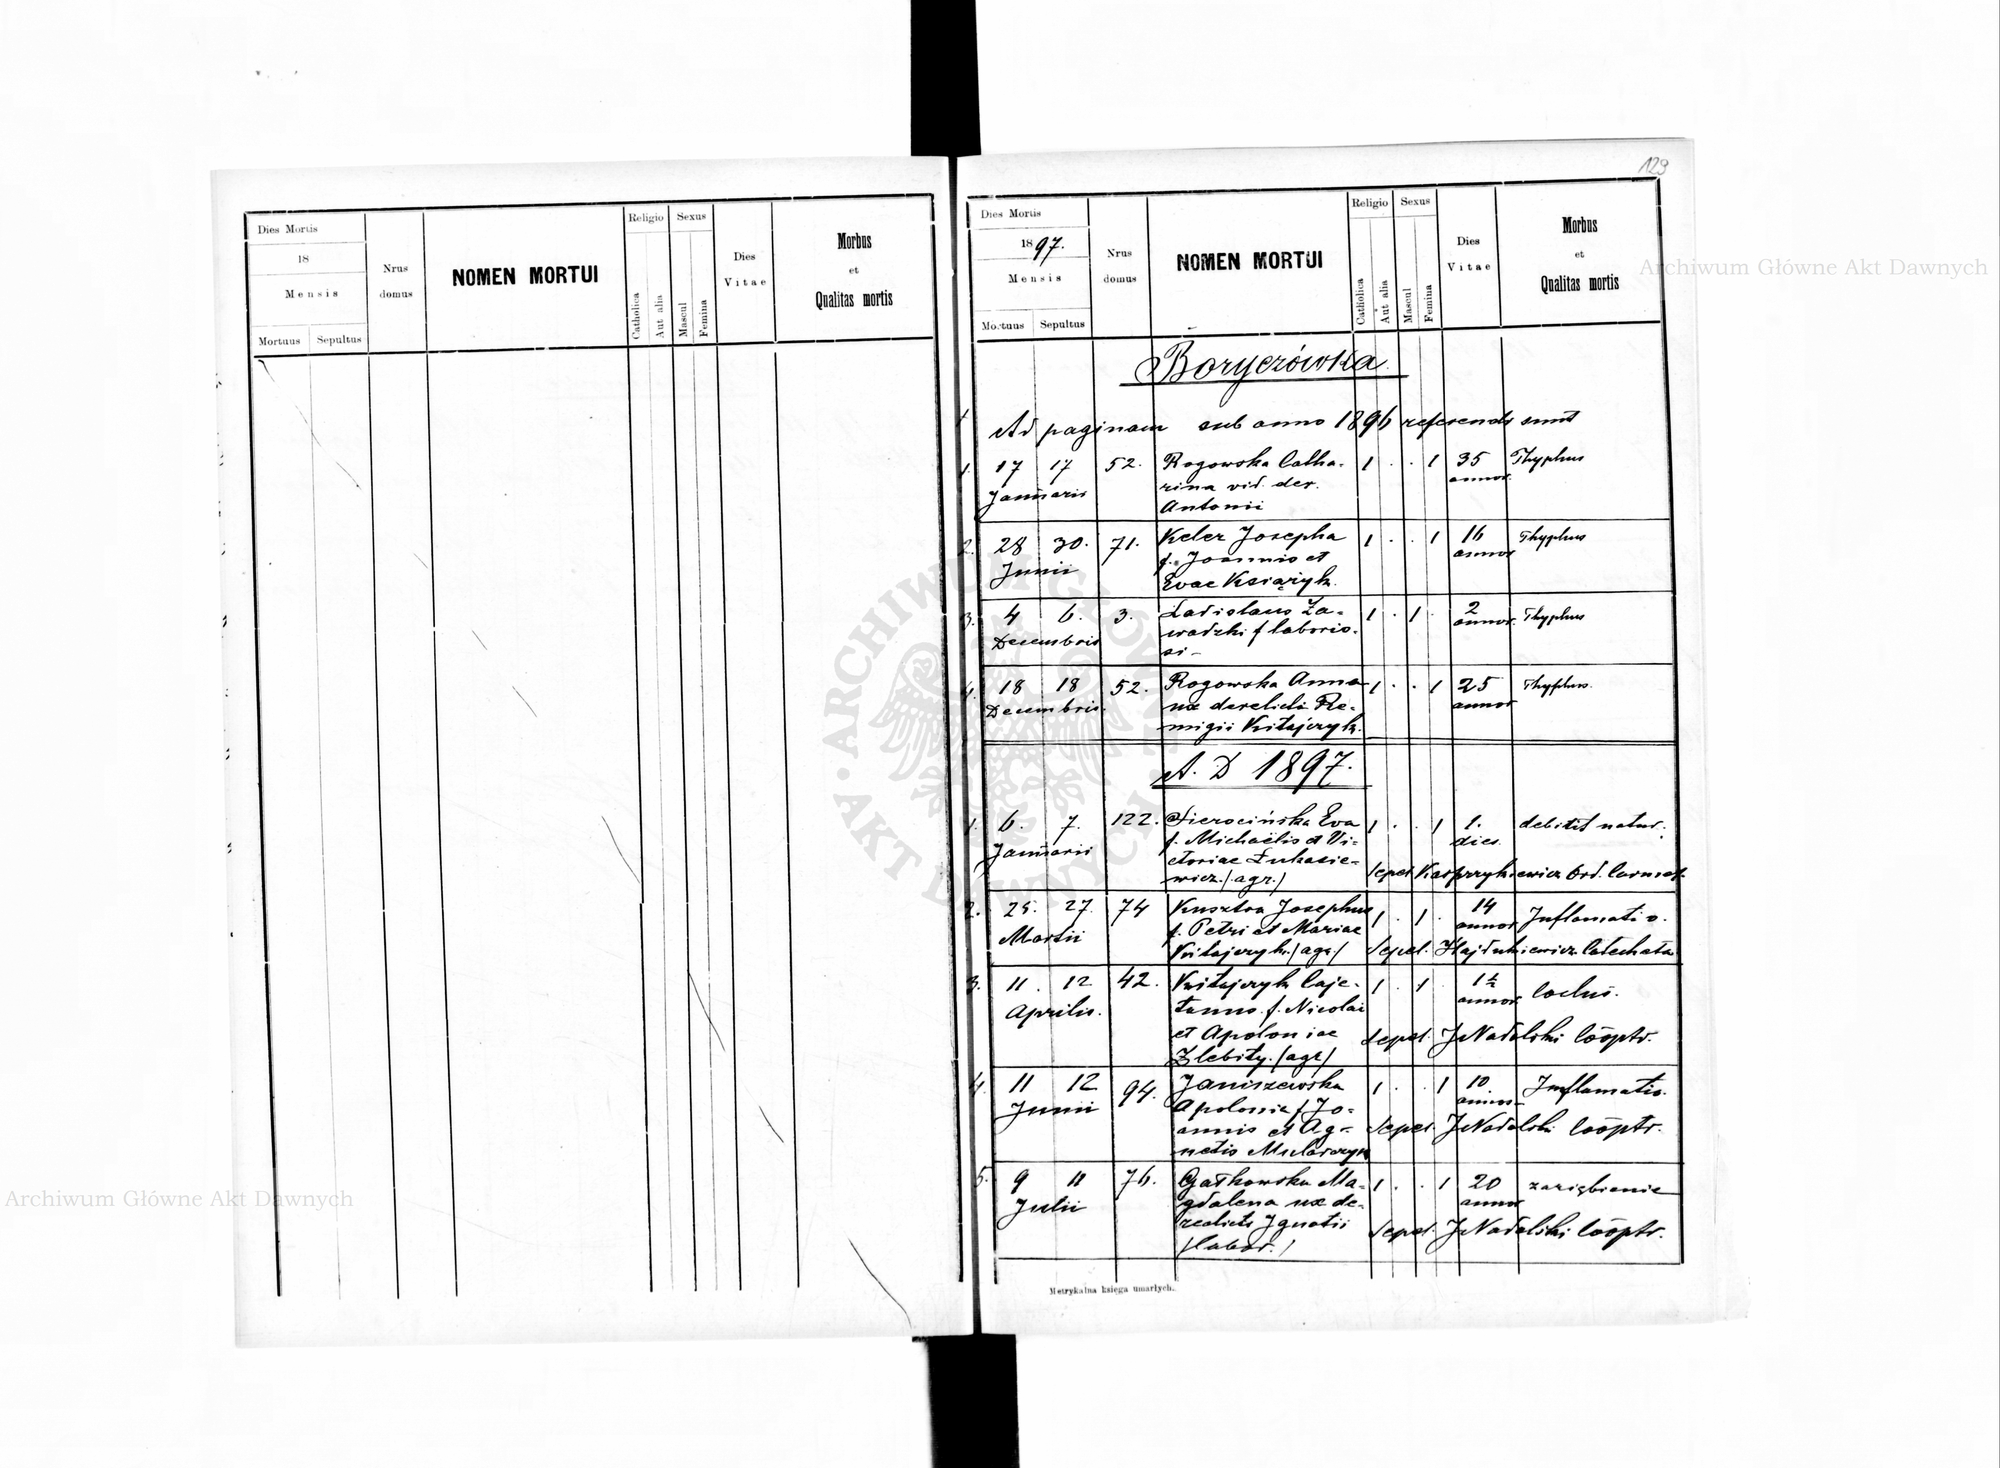 129
Archiwum Główne Akt Dawnych
Dies Mortis
18
Mensis
Mortuus Sepultus
Nrus domus
NOMEN MORTUI
Religio
Catholica Aut alia
Sexus
Mascul Femina
Dies Vitae
Morbus
et
Qualitas mortis
Dies Mortis
1897.
Mensis
Mortuus Sepultus
Nrus domus
NOMEN MORTUI
Religio
Catholica Aut alia
Sexus
Mascul Femina
Dies Vitae
Morbus
et
Qualitas mortis
Boryczówka
Ad paginam sub anno 1896 referendi sunt
1. 17 17 52. Rogowska Catha- 1 . . 1 35 Thyphus
Januarii rina vid. der. annor.
Antonii
2. 28 30. 71. Keler Josepha 1 . . 1 16 Thyphus
Junii f. Joannis et annor
Evae Książyk.
3. 4 6. 3. Ladislaus Za- 1 . 1 . 2 Thyphus
Decembris wadzki f laborio- annor.
si-
4. 18 18 52. Rogowska Anna 1 . . 1 25 Thyphus.
Decembris. ux derelicti Re- annor
migii Kitajczyk.
A. D 1897.
1. 6. 7. 122. Sierocińska Eva 1 . . 1 1. debilit natur.
Januarii f. Michaëlis et Vi- dies.
ctoriae Łukasie-
wicz. /agr./ Sepel. Kasprzykiewicz Ord. Carmel.
2. 25. 27. 74 Kusztra Josephus 1 . 1 . 14 Inflamatio.
Martii f. Petri et Mariae annor
Kitajczyk. /agr/ Sepel. Hajdukiewicz Catecheta
3. 11. 12 42. Kitajczyk Caje- 1 . 1 . 1½
Aprilis. tanus. f. Nicolai annor.
et Apoloniae Sepel. J Nadolski Cooptr.
Zlebity. /agr/
4. 11 12 94. Janiszewska 1 . . 1 10 Inflamatio.
Junii Apolonia f Jo- annor
annis et Ag- Sepel. J Nadolski Cooptr.
netis Mularczyk
5. 9 11 76. Gałkowska Ma- 1 . . 1 20 zaziębienie
Julii gdalena ux de- annor
relicti Ignatii Sepel. J Nadolski Cooptr.
/labor./
Metrykalna księga umarłych.
ARCHIWUM GŁÓWNE AKT DAWNYCH
Archiwum Główne Akt Dawnych